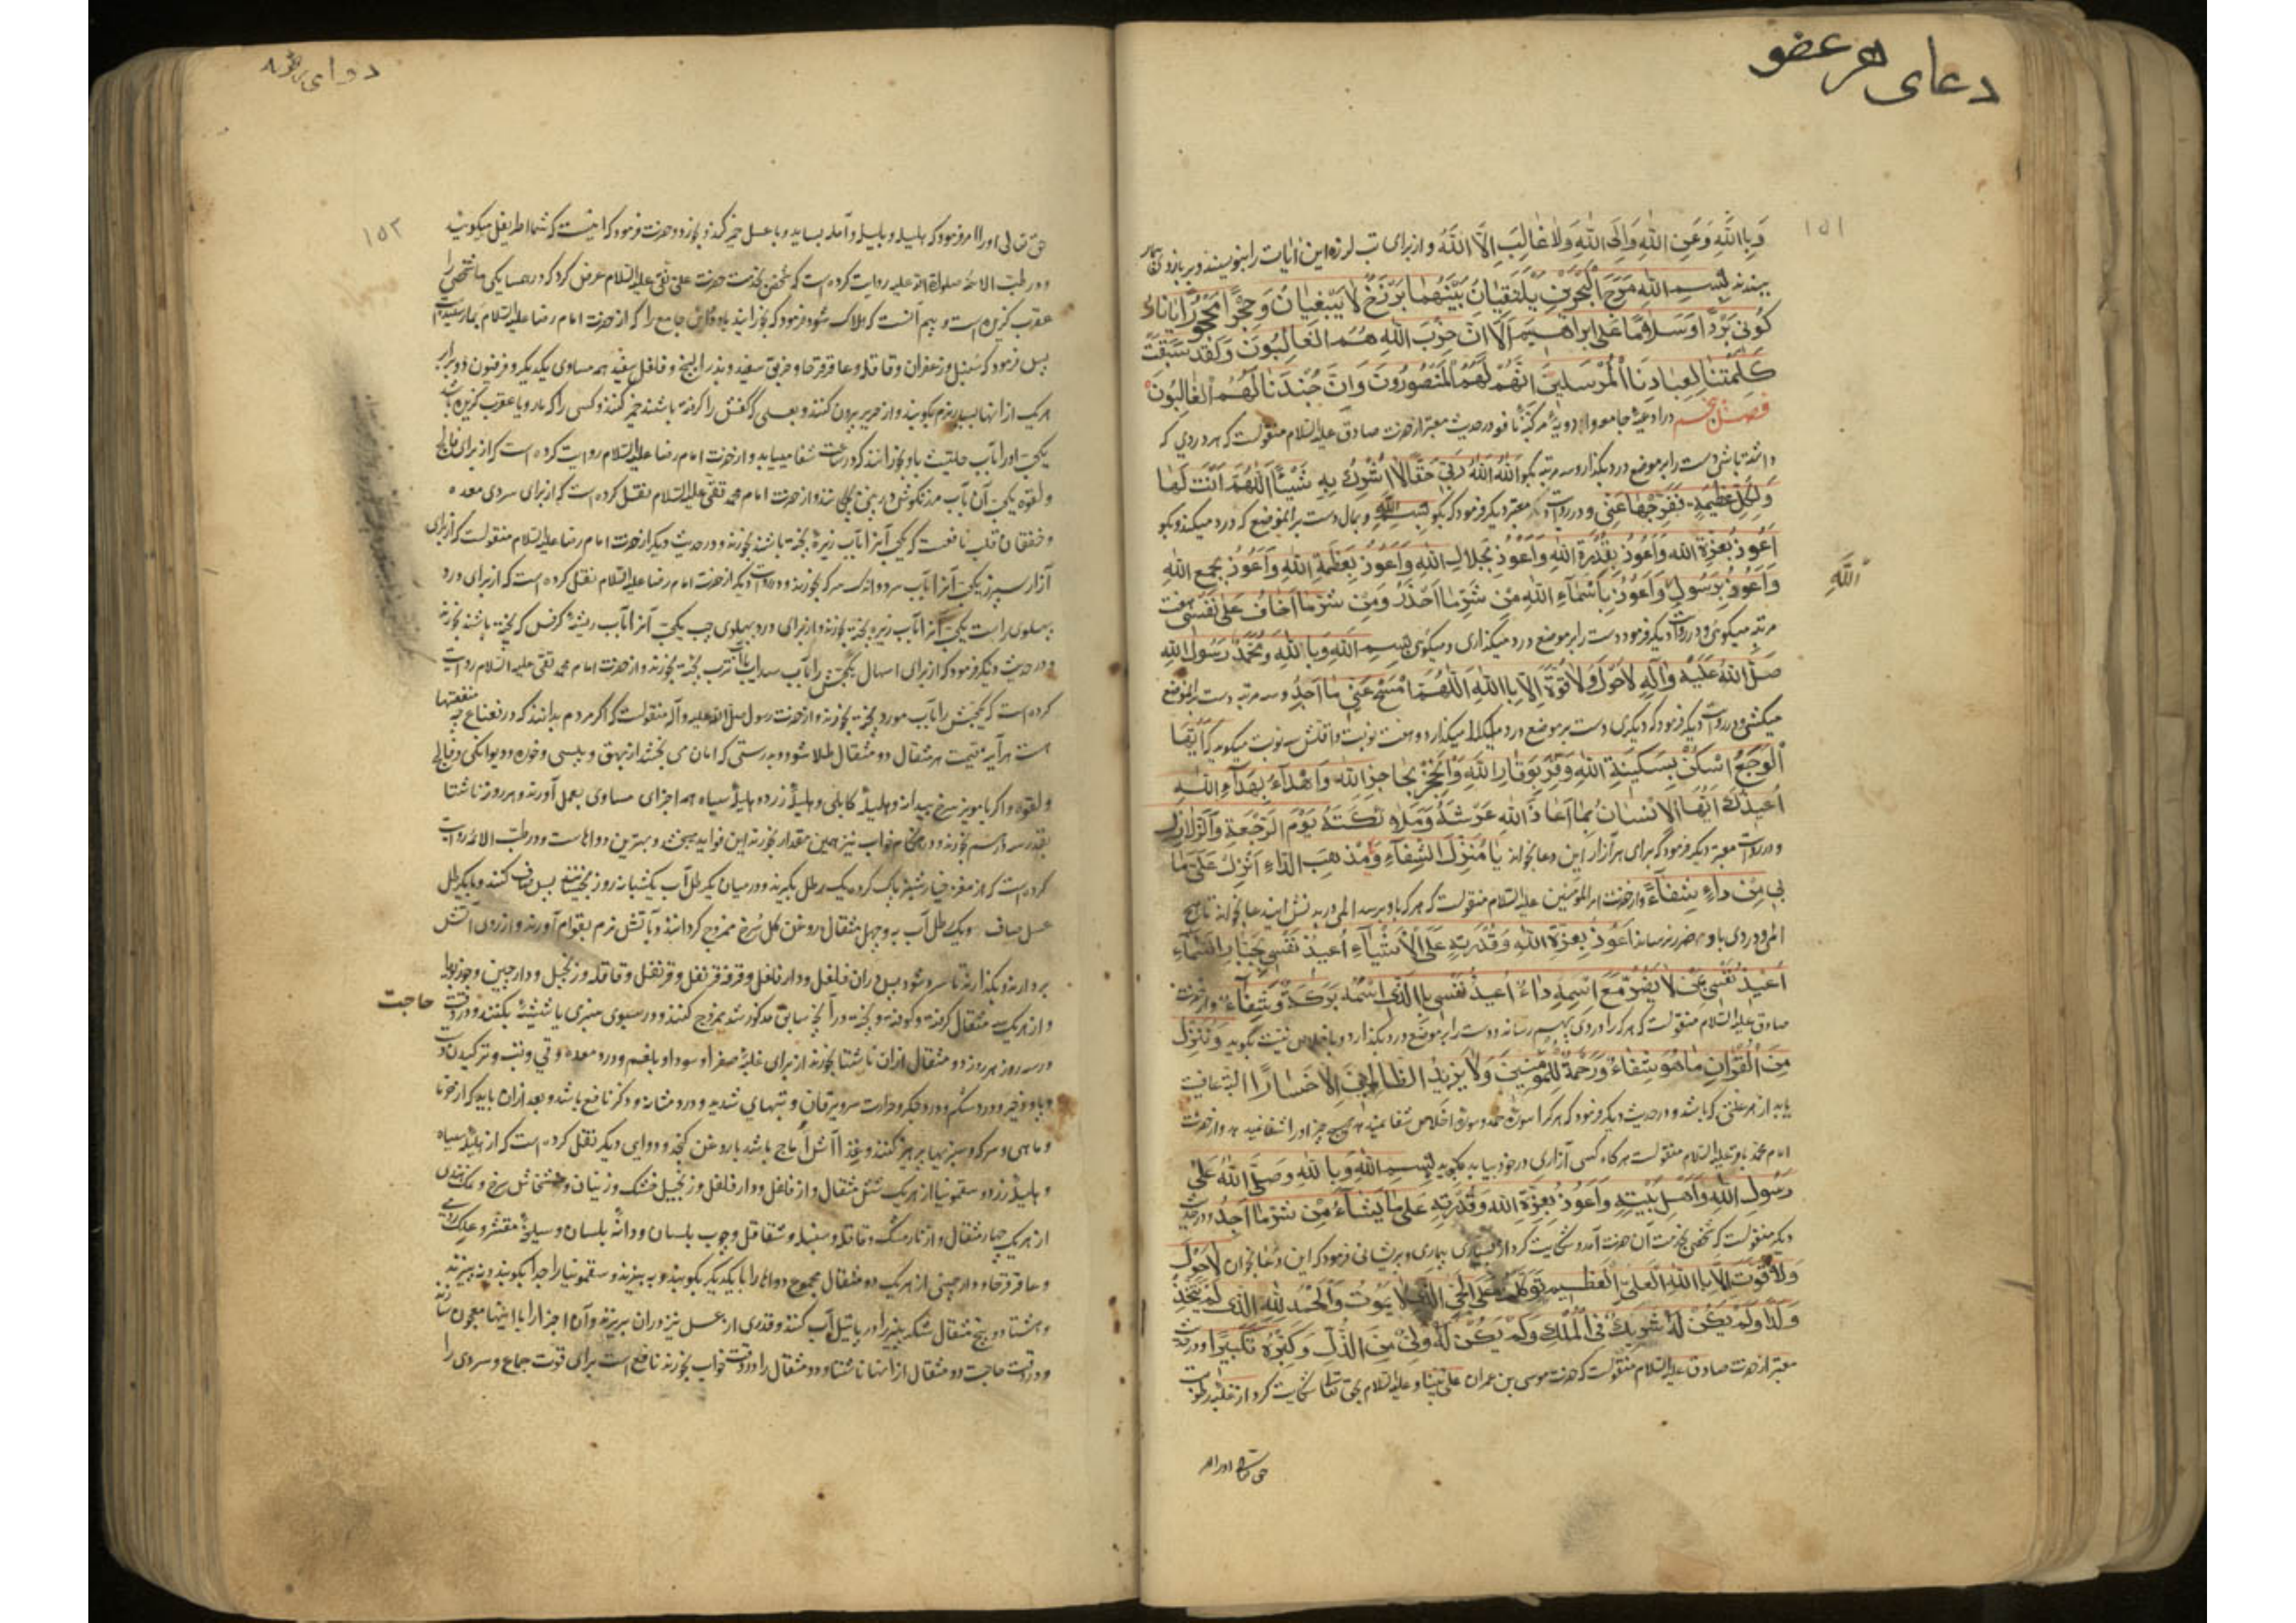 دعای هر عضو
١٥١
وَبِاللَّهِ وَعَنِ اللَّهِ وَاِلَی اللَّهِ وَلَا غَالِبَ اِلَّا اللَّهُ و از برای تب لرزه این ایات را بنویسند و بر بازوی بیمار
ببندند بِسمِ اللَّهِ مَرَجَ الْبَحْرَيْنِ يَلْتَقِيَانِ بَيْنَهُمَا بَرْزَخٌ لَا يَبْغِيَانِ وَحِجْرًا مَحْجُورًا يَا نَارُ
كُونِي بَرْدًا وَسَلَامًا عَلَى اِبرَاهِيمَ اَلَا اِنَّ حِزْبَ اللَّهِ هُمُ الْغَالِبُونَ وَلَقَدْ سَبَقَتْ
كَلِمَتُنَا لِعِبَادِنَا الْمُرْسَلِينَ اِنَّهُمْ لَهُمُ الْمَنْصُورُونَ وَاِنَّ جُنْدَنَا لَهُمُ الْغَالِبُونَ
فصل در ادعیهٔ جامعه و ادویهٔ مرکبهٔ نافعه در حدیث معتبر از حضرت صادق علیه السلام منقولست که هر دردی که
داشته باشی دست را بر موضع درد بگذار و سه مرتبه بگو اَللَّهُ اَللَّهُ رَبِّي حَقًّا لَا اُشْرِكُ بِهِ شَيْئًا اَللَّهُمَّ اَنْتَ لَهَا
وَلِكُلِّ عَظِيمَةٍ فَفَرِّجْهَا عَنِّي و در روایت معتبر دیگر فرمود که بگو بسم اللَّه و بمال دست بر آن موضع که درد میکند و بگو
اَعُوذُ بِعِزَّةِ اللَّهِ وَاَعُوذُ بِقُدْرَةِ اللَّهِ وَاَعُوذُ بِجَلَالِ اللَّهِ وَاَعُوذُ بِعَظَمَةِ اللَّهِ وَاَعُوذُ بِجَمْعِ اللَّهِ
وَاَعُوذُ بِرَسُولِ اللَّهِ وَاَعُوذُ بِاَسْمَاءِ اللَّهِ مِنْ شَرِّ مَا اَحْذَرُ وَمِنْ شَرِّ مَا اَخَافُ عَلَى نَفْسِي هفت
مرتبه میگوئی و در روایت دیگر فرمود دست را بر موضع درد میگذاری و میگوئی بِسمِ اللَّهِ وَبِاللَّهِ وَمُحَمَّدٌ رَسُولُ اللَّهِ
صَلَّى اللَّهُ عَلَيْهِ وَآلِهِ لَا حَوْلَ وَلَا قُوَّةَ اِلَّا بِاللَّهِ اَللَّهُمَّ امْسَحْ عَنِّي مَا اَجِدُ و سه مرتبه دست بر آن موضع
میکشی و در روایت دیگر فرمود که دیگری دست بر موضع درد میگذارد و هفت نوبت و اقلش سه نوبت میگوید که اَيُّهَا
الْوَجَعُ اسْكُنْ بِسَكِينَةِ اللَّهِ وَقِرْ بِوَقَارِ اللَّهِ وَانْحَجِزْ بِحَاجِزِ اللَّهِ وَاهْدَاءْ بِهَدْءِ اللَّهِ
اُعِيذُكَ اَيُّهَا الْاِنْسَانُ بِمَا اَعَاذَ اللَّهُ عَرْشَهُ وَمَلَائِكَتَهُ يَوْمَ الرَّجْفَةِ وَالزَّلَازِلِ
و در روایت معتبر دیگر فرمود که برای هر آزار این دعا بخواند يَا مُنْزِلَ الشِّفَاءِ وَمُذْهِبَ الدَّاءِ اَنْزِلْ عَلَى مَا
بِي مِنْ دَاءٍ شِفَاءً و از حضرت امیر المؤمنین علیه السلام منقولست که هر که باو برسد المی در بدنش ایندعا بخواند تا هیچ
المی و دردی باو ضرر نرساند اَعُوذُ بِعِزَّةِ اللَّهِ وَقُدْرَتِهِ عَلَى الْاَشْيَاءِ اُعِيذُ نَفْسِي بِجَبَّارِ السَّمَاءِ
اُعِيذُ نَفْسِي بِمَنْ لَا يَضُرُّ مَعَ اسْمِهِ دَاءٌ اُعِيذُ نَفْسِي بِالَّذِي اسْمُهُ بَرَكَةٌ وَشِفَاءٌ و از حضرت
صادق علیه السلام منقولست که هر که را دردی بهم رسد دست را بر موضع درد بگذارد و باخلاص نیت بگوید وَنُنَزِّلُ
مِنَ الْقُرْآنِ مَا هُوَ شِفَاءٌ وَرَحْمَةٌ لِلْمُؤْمِنِينَ وَلَا يَزِيدُ الظَّالِمِينَ اِلَّا خَسَارًا البته عافیت
یابد از هر علتی که باشد و در حدیث دیگر فرمود که هر کرا سورهٔ حمد و سورهٔ اخلاص شفا ندهد هیچ چیز او را شفا ندهد و از حضرت
امام محمد باقر علیه السلام منقولست هر گاه کسی آزاری در خود بیابد بگوید بِسمِ اللَّهِ وَبِاللَّهِ وَصَلَّى اللَّهُ عَلَى
رَسُولِ اللَّهِ وَاَهْلِ بَيْتِهِ وَاَعُوذُ بِعِزَّةِ اللَّهِ وَقُدْرَتِهِ عَلَى مَا يَشَاءُ مِنْ شَرِّ مَا اَجِدُ و در حدیث
دیگر منقولست که شخصی بخدمت آن حضرت آمد و شکایت کرد از بسیاری بیماری و پریشانی فرمود که این دعا بخوان لَا حَوْلَ
وَلَا قُوَّةَ اِلَّا بِاللَّهِ الْعَلِيِّ الْعَظِيمِ تَوَكَّلْتُ عَلَى الْحَيِّ الَّذِي لَا يَمُوتُ وَالْحَمْدُ لِلَّهِ الَّذِي لَمْ يَتَّخِذْ
وَلَدًا وَلَمْ يَكُنْ لَهُ شَرِيكٌ فِي الْمُلْكِ وَلَمْ يَكُنْ لَهُ وَلِيٌّ مِنَ الذُّلِّ وَكَبِّرْهُ تَكْبِيرًا و در حدیث
معتبر از حضرت صادق علیه السلام منقولست که حضرت موسی بن عمران علی نبینا و علیه السلام بحق تعالی شکایت کرد از غلبه رطوبت
اللَّهِ
حق تعالی اورا امر
١٥٢
حق تعالی اورا امر فرمود که هلیله و بلیله و آمله بساید و با عسل خمیر کند و بخورد و حضرت فرمود که اینست که شما اطریفل میگویید
و در طب الائمه صلوات الله علیه روایت کرده است که شخصی بخدمت حضرت علی نقی علیه السلام عرض کرد که در همسایگی ما شخصی را
عقرب گزیده است و بیم آنست که هلاک شود فرمود که بخورانید باو دوای جامع را که از حضرت امام رضا علیه السلام بما رسیده است
پس فرمود که سنبل و زعفران و قاقله و عاقرقرحا و خربق سفید و بذر البنج و فلفل سفید همه مساوی یکدیگر و فرفیون دو برابر
هر یک از انها بسیار نرم بکوبند و از حریر بیرون کنند و بعسلی که کفش را گرفته باشند خمیر کنند و کسی را که مار و یا عقرب گزیده باشد
یکحب اورا بآب حلتیت باو بخورانند که در ساعت شفا مییابد و از حضرت امام رضا علیه السلام روایت کرده است که از برای فالج
و لقوه یکحب آن بآب مرزنگوش در بینی بچکانند و از حضرت امام محمد تقی علیه السلام نقل کرده است که از برای سردی معده
و خفقان قلب نافعست که یکحب آنرا بآب زیرهٔ پخته باشند بخورند و در حدیث دیگر از حضرت امام رضا علیه السلام منقولست که از برای
آزار سپرز یکحب آنرا بآب سرد و اندک سرکه بخورند و در روایت دیگر از حضرت امام رضا علیه السلام نقل کرده است که از برای درد
پهلوی راست یکحب آنرا بآب زیره پخته بخورند و از برای درد پهلوی چپ یکحب آنرا بآب ریشهٔ کرفس که پخته باشند بخورند
و در حدیث دیگر فرمود که از برای اسهال یکحبش را بآب سداب یا آب ترب پخته بخورند و از حضرت امام محمد تقی علیه السلام روایت
کرده است که یکحبش را بآب مورد پخته بخورند و از حضرت رسول صلی الله علیه و آله منقولست که اگر مردم بدانند که در نعناع چه منفعتها
است هر آینه قیمت هر مثقال دو مثقال طلا شود و بدرستی که امان می بخشد از بهق و پیسی و خوره و دیوانگی و فالج
و لقوه و اگر با مویز سرخ بیدانه و هلیلهٔ کابلی و هلیلهٔ زرد و هلیلهٔ سیاه همه اجزای مساوی بعمل آورند و هر روز ناشتا
بقدر سه درهم بخورند و در هنگام خواب نیز همین مقدار بخورند این فواید ببخشد و بهترین دواهاست و در طب الائمه روایت
کرده است که از مغز خیارشنبر پاک کرده یک رطل بگیرند و در میان یکرطل آب یکشبانه روز بخیسانند پس صاف کنند و با یکرطل
عسل صاف و یک رطل آب به و چهل مثقال روغن گل سرخ ممزوج گردانند و بآتش نرم بقوام آورند و از روی آتش
بردارند و بگذارند تا سرد شود پس در آن فلفل و دار فلفل و قرفه قرنفل و قرنفل و قاقله و زنجبیل و دارچین و جوزبوا
و از هر یک سه مثقال گرفته و کوفته و بیخته در آنچه سابق مذکور شد ممزوج کنند و در سبوی سبزی یا شیشهٔ بکنند و در وقت حاجت
در سه روز هر روز دو مثقال ازان ناشتا بخورند از برای غلبهٔ صفرا و سودا و بلغم و درد معده و قی و تب و ترکیدن دست
و پا و زحیر و درد شکم و درد جگر و حرارت سر و یرقان و تبهای شدید و درد مثانه و ذکر نافع باشد و بعد ازان باید که از خرما
و ماهی و سرکه و سبزیها پرهیز کنند و غذا آش اماج باشد با روغن کنجد و دوایی دیگر نقل کرده است که از هلیلهٔ سیاه
و هلیلهٔ زرد و سقمونیا از هر یک شش مثقال و از فلفل و دار فلفل و زنجبیل خشک و زنیان و خشخاش سرخ و نمک هندی
از هر یک چهار مثقال و از نارمشک و قاقله و سنبله و شقاقل و چوب بلسان و دانهٔ بلسان و سلیخهٔ مقشر و علک رومی
و عاقرقرحا و دارچینی از هر یک دو مثقال مجموع دواها را با یکدیگر بکوبند و ببیزند و سقمونیا را جدا بکوبند و نه بیزند
و هشتاد و پنج مثقال شکر پنیر را در پاتیل آب کنند و قدری از عسل نیز دران بریزند و آن اجزا را با اینها معجون سازند
و در وقت حاجت دو مثقال از انها ناشتا و دو مثقال را در وقت خواب بخورند نافع است برای قوت جماع و سردی را